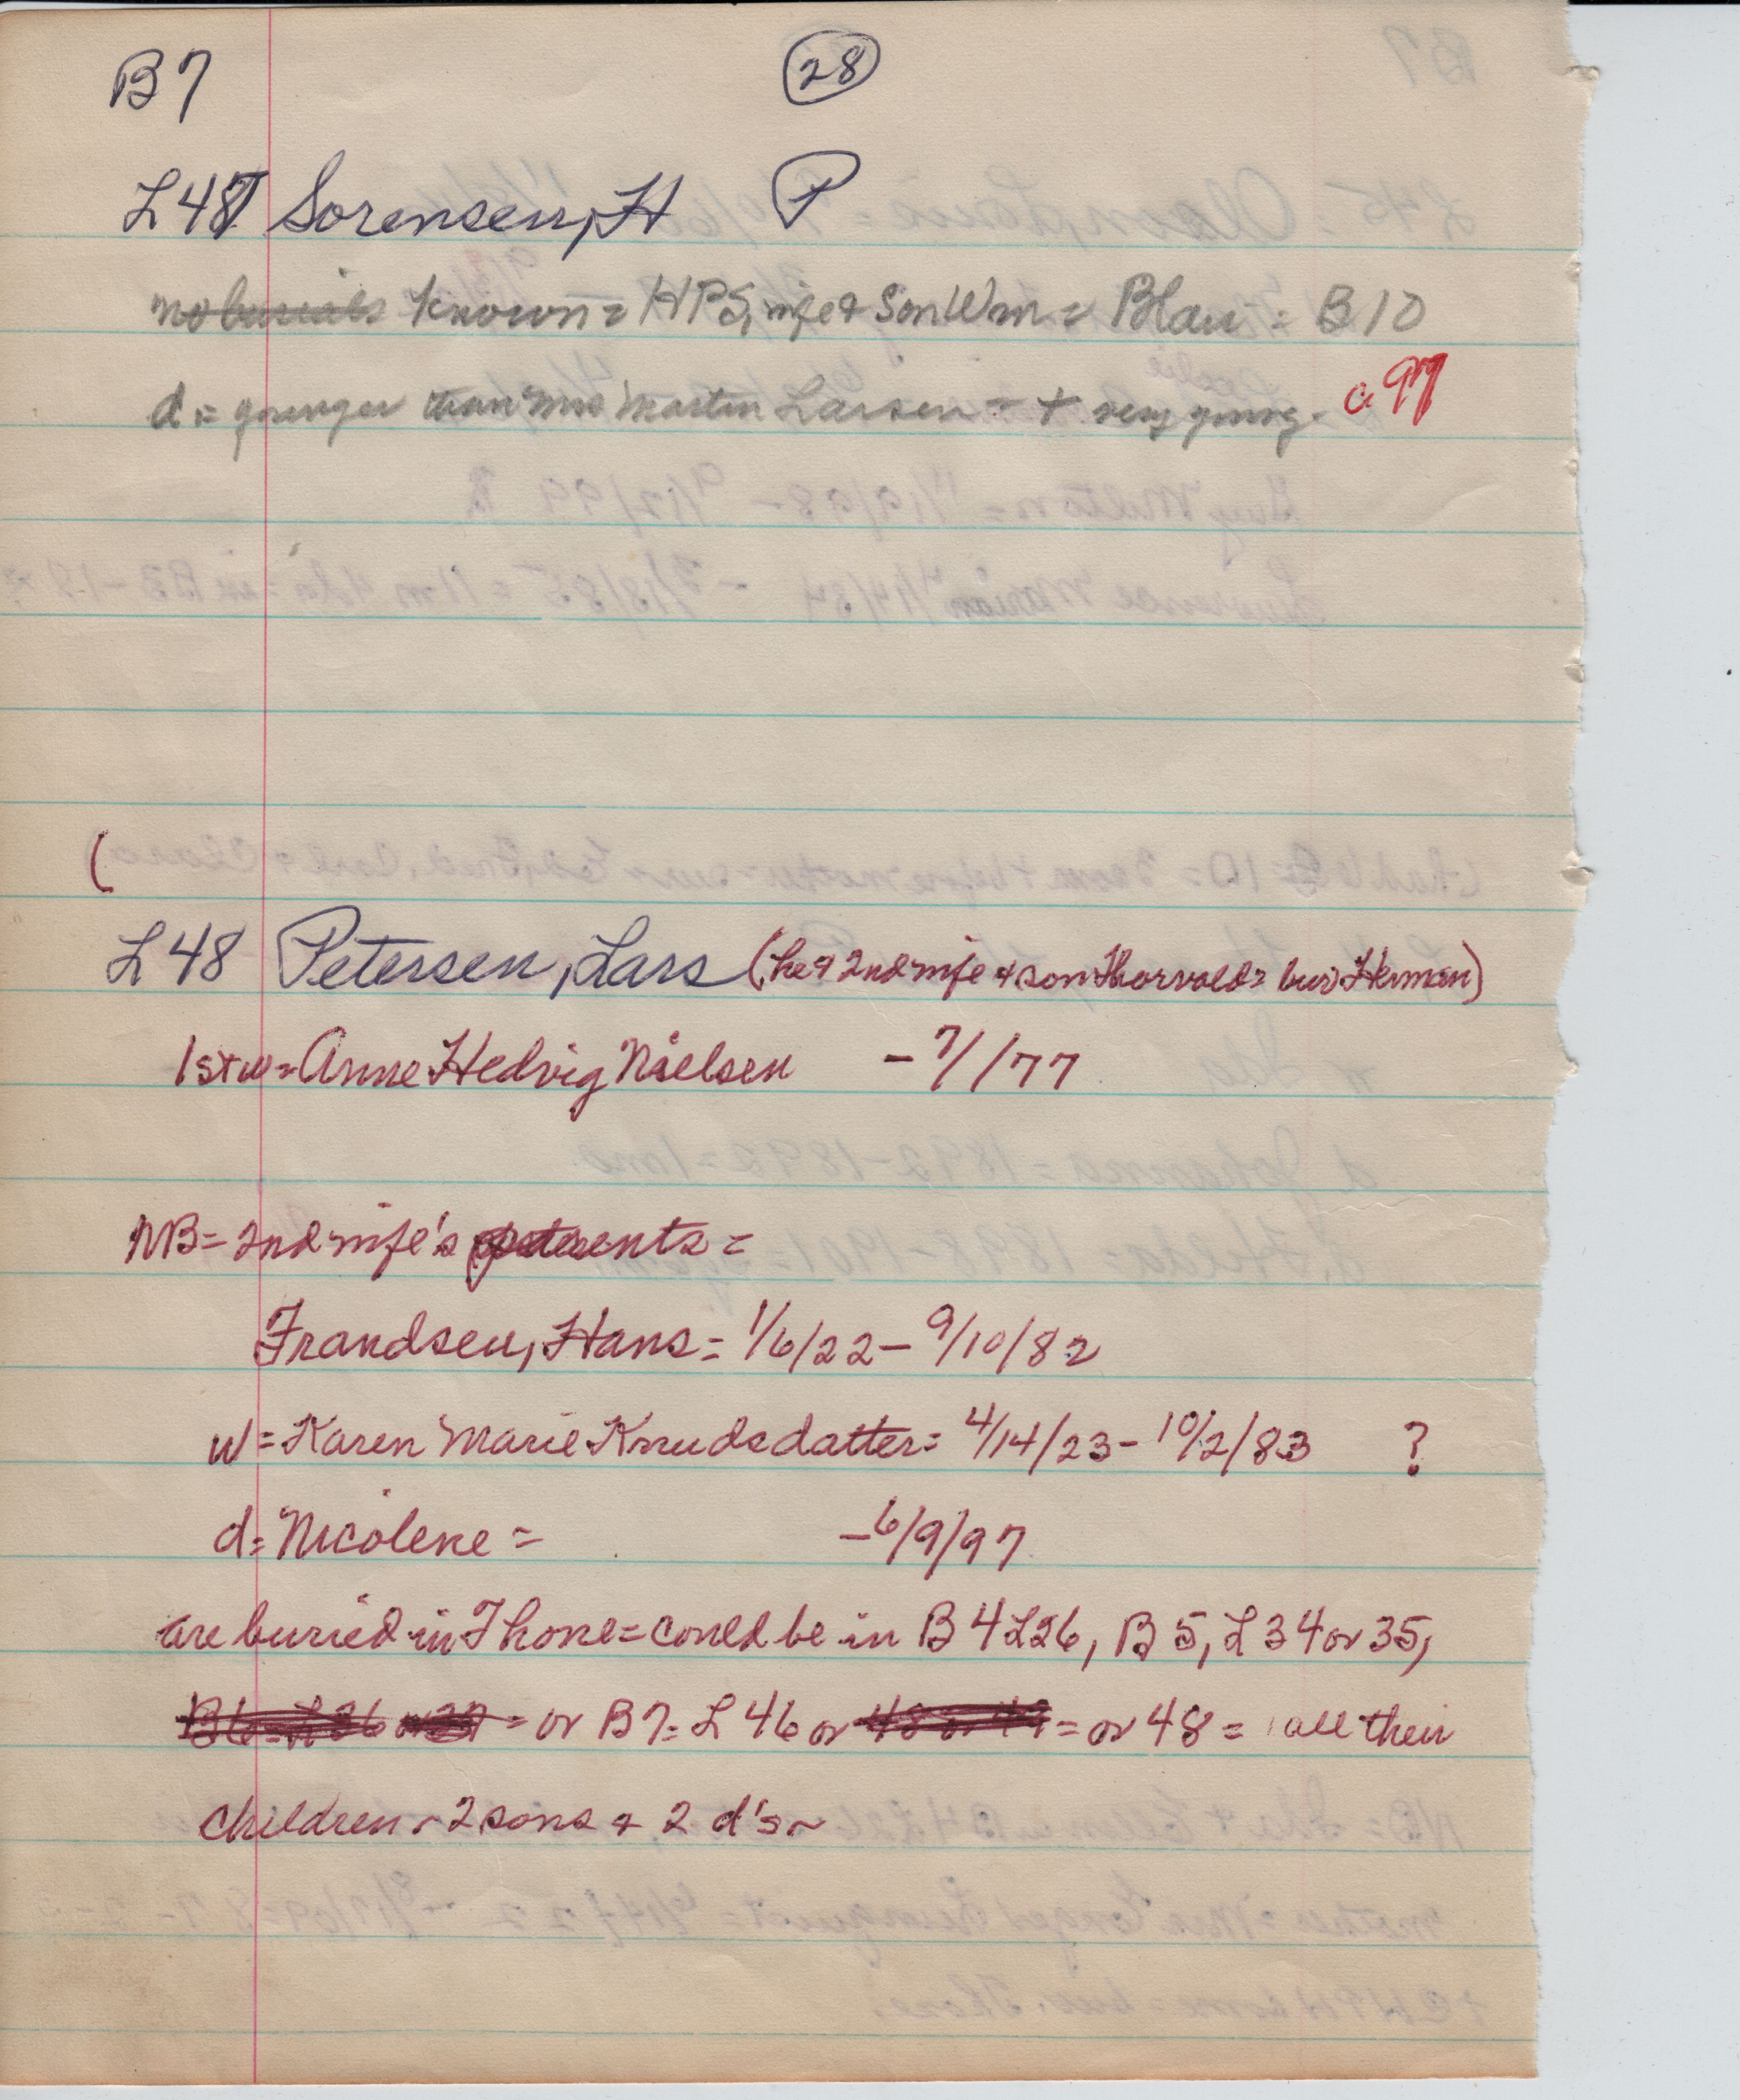 B7 28
L47 Sorensen, H P
no burials known = HPS, wife & son Wm = Blair = B10
d = younger than Mrs Martin Larsen = + very young - a 97
(
L48 Petersen, Lars (he & 2nd wife & son Thorvald = bur. Herman)
1st w = Anne Hedvig Nielsen - 7/ /77
NB = 2nd wife's parents =
Frandsen, Hans = 1/6/22 - 9/10/82
w = Karen Marie Knudsdatter = 4/14/23 - 10/2/83 ?
d = Nicolene = - 6/9/97
are buried in Thone = could be in B4 L26, B5, L34 or 35,
B6 = L36 or 37 = or B7 = L46 or 48 or 49 = or 48 = all their
children - 2 sons + 2 d's -